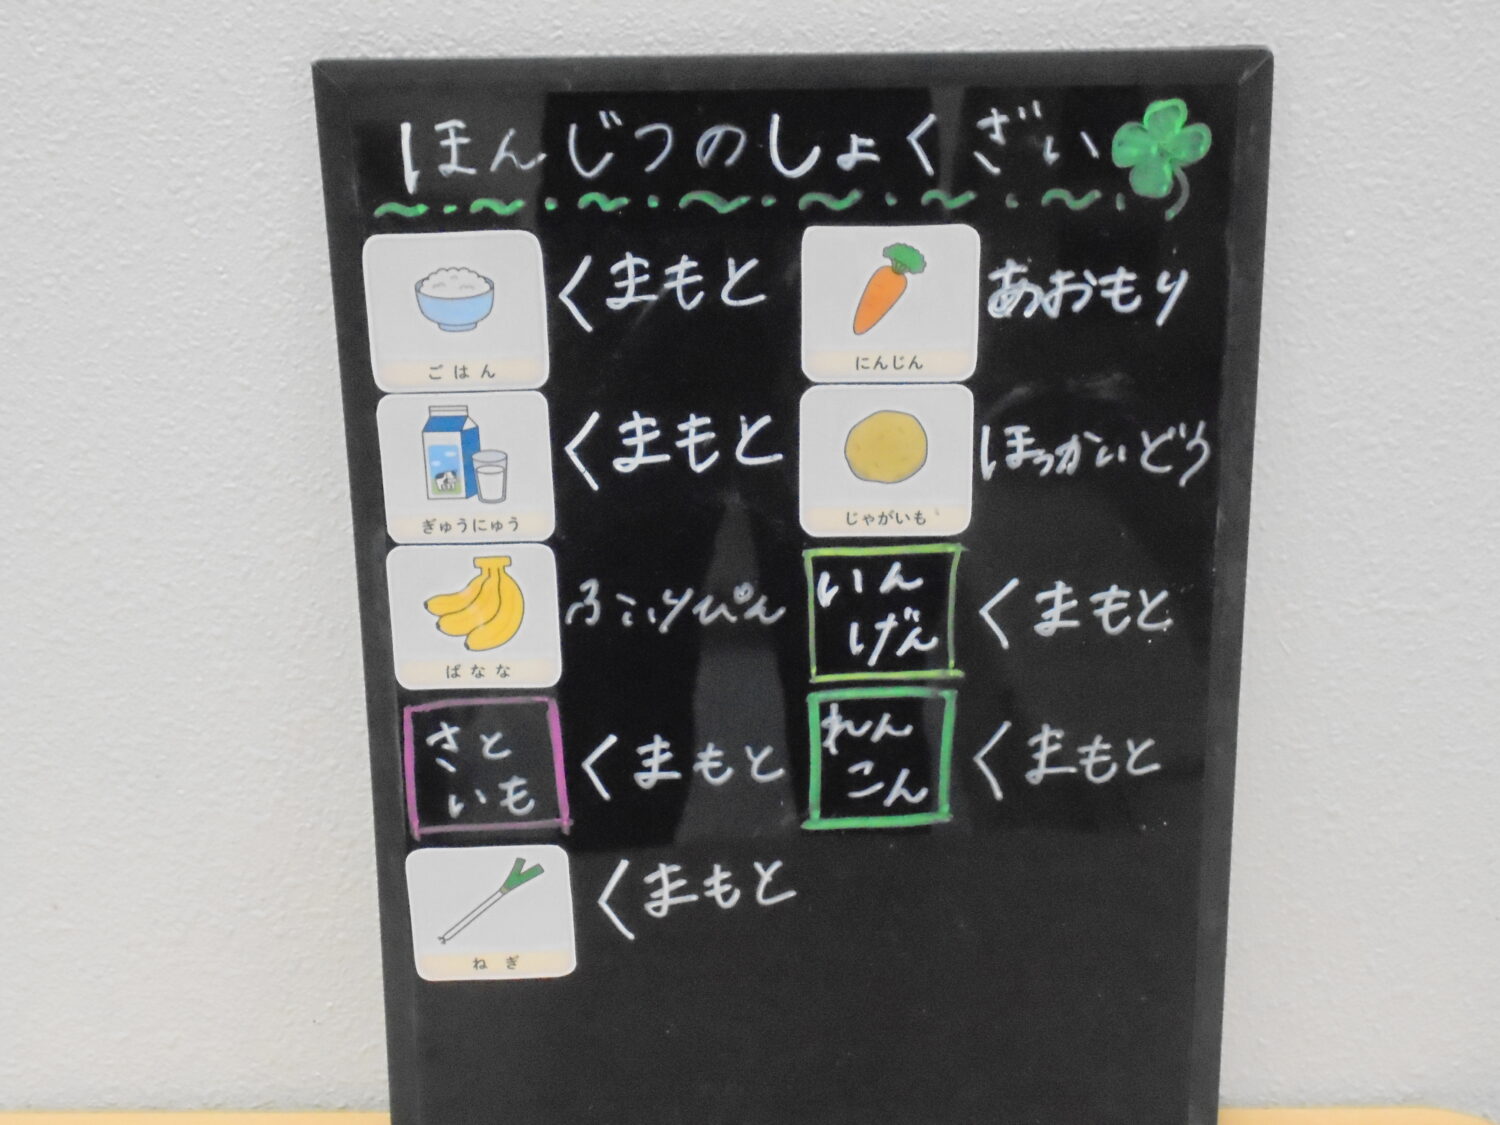 ほんじつのしょくざい
ごはん
くまもと
ぎゅうにゅう
くまもと
ばなな
ふぃりぴん
さと
いも
くまもと
ねぎ
くまもと
にんじん
あおもり
じゃがいも
ほっかいどう
いん
げん
くまもと
れん
こん
くまもと